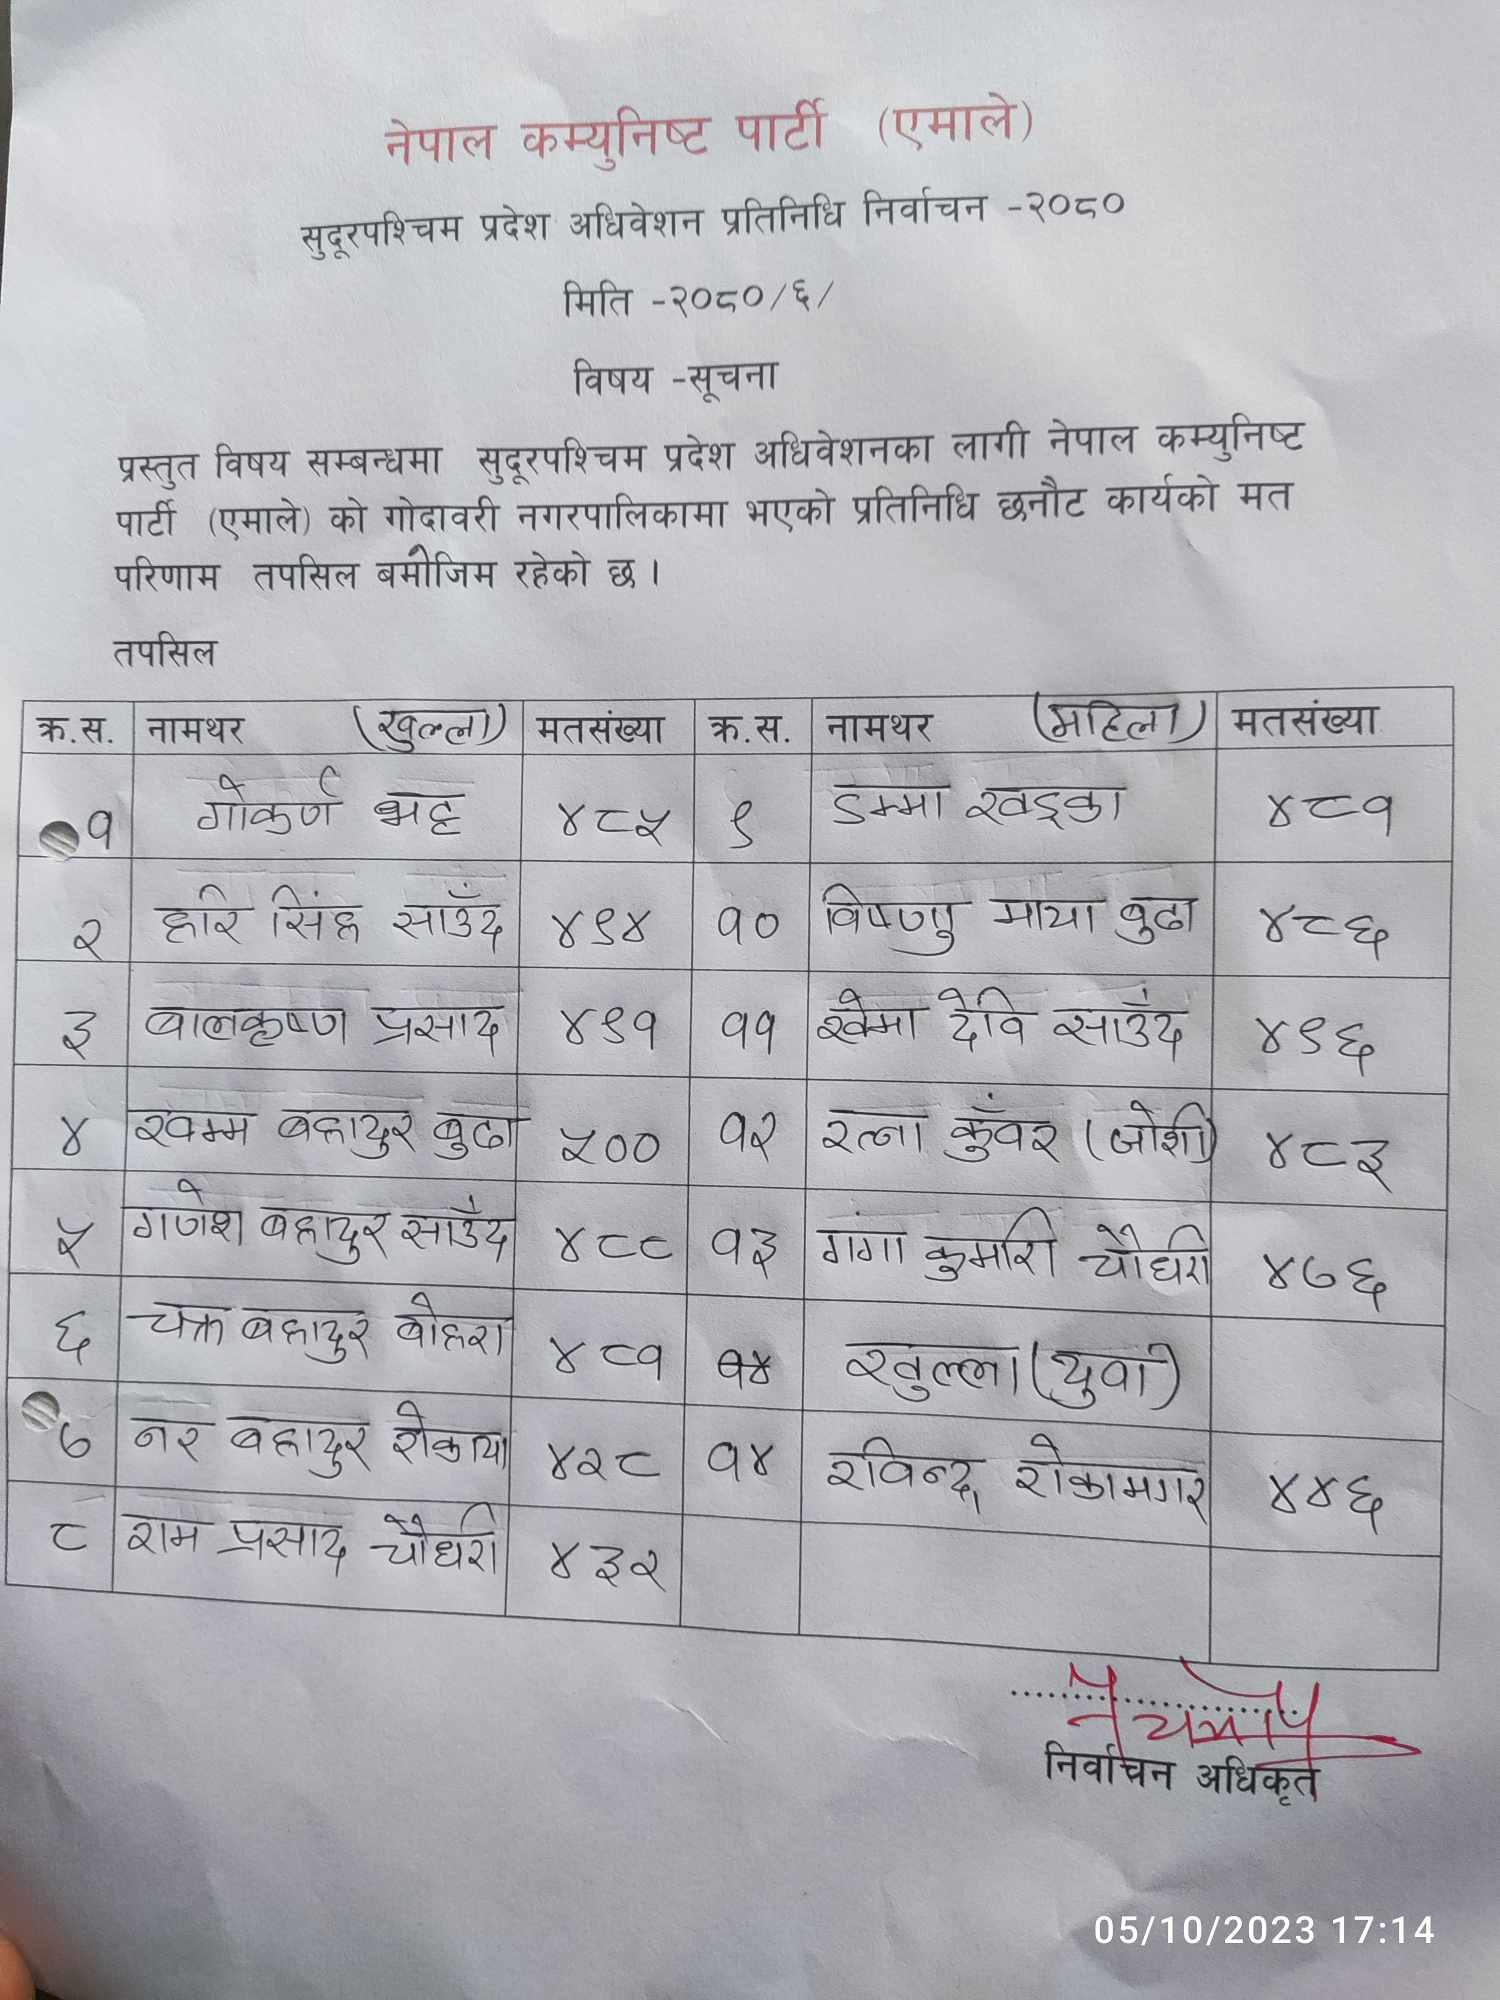 नेपाल कम्युनिष्ट पार्टी (एमाले)
सुदूरपश्चिम प्रदेश अधिवेशन प्रतिनिधि निर्वाचन -२०८०
मिति -२०८०/६/
विषय -सूचना
प्रस्तुत विषय सम्बन्धमा सुदूरपश्चिम प्रदेश अधिवेशनका लागी नेपाल कम्युनिष्ट
पार्टी (एमाले) को गोदावरी नगरपालिकामा भएको प्रतिनिधि छनौट कार्यको मत
परिणाम तपसिल बमोजिम रहेको छ ।
तपसिल
क्र.स. नामथर (खुल्ला) मतसंख्या क्र.स. नामथर (महिला) मतसंख्या
१ गोकर्ण भट्ट ४८५ ९ डम्मा खड्का ४८१
२ हरि सिंह साउँद ४९४ १० विष्णु माया बुढा ४८६
३ बालकृष्ण प्रसाद ४९१ ११ खेमा देवि साउँद ४९६
४ खम्म बहादुर बुढा ५०० १२ रत्ना कुँवर (जोशी) ४८३
५ गणेश बहादुर साउँद ४८८ १३ गंगा कुमारी चौधरी ४७६
६ चक्र बहादुर बोहरा ४८१ १४ खुल्ला (युवा)
७ नर बहादुर रोकाया ४२८ १४ रविन्द्र रोकामगर ४४६
८ राम प्रसाद चौधरी ४३२
निर्वाचन अधिकृत
05/10/2023 17:14